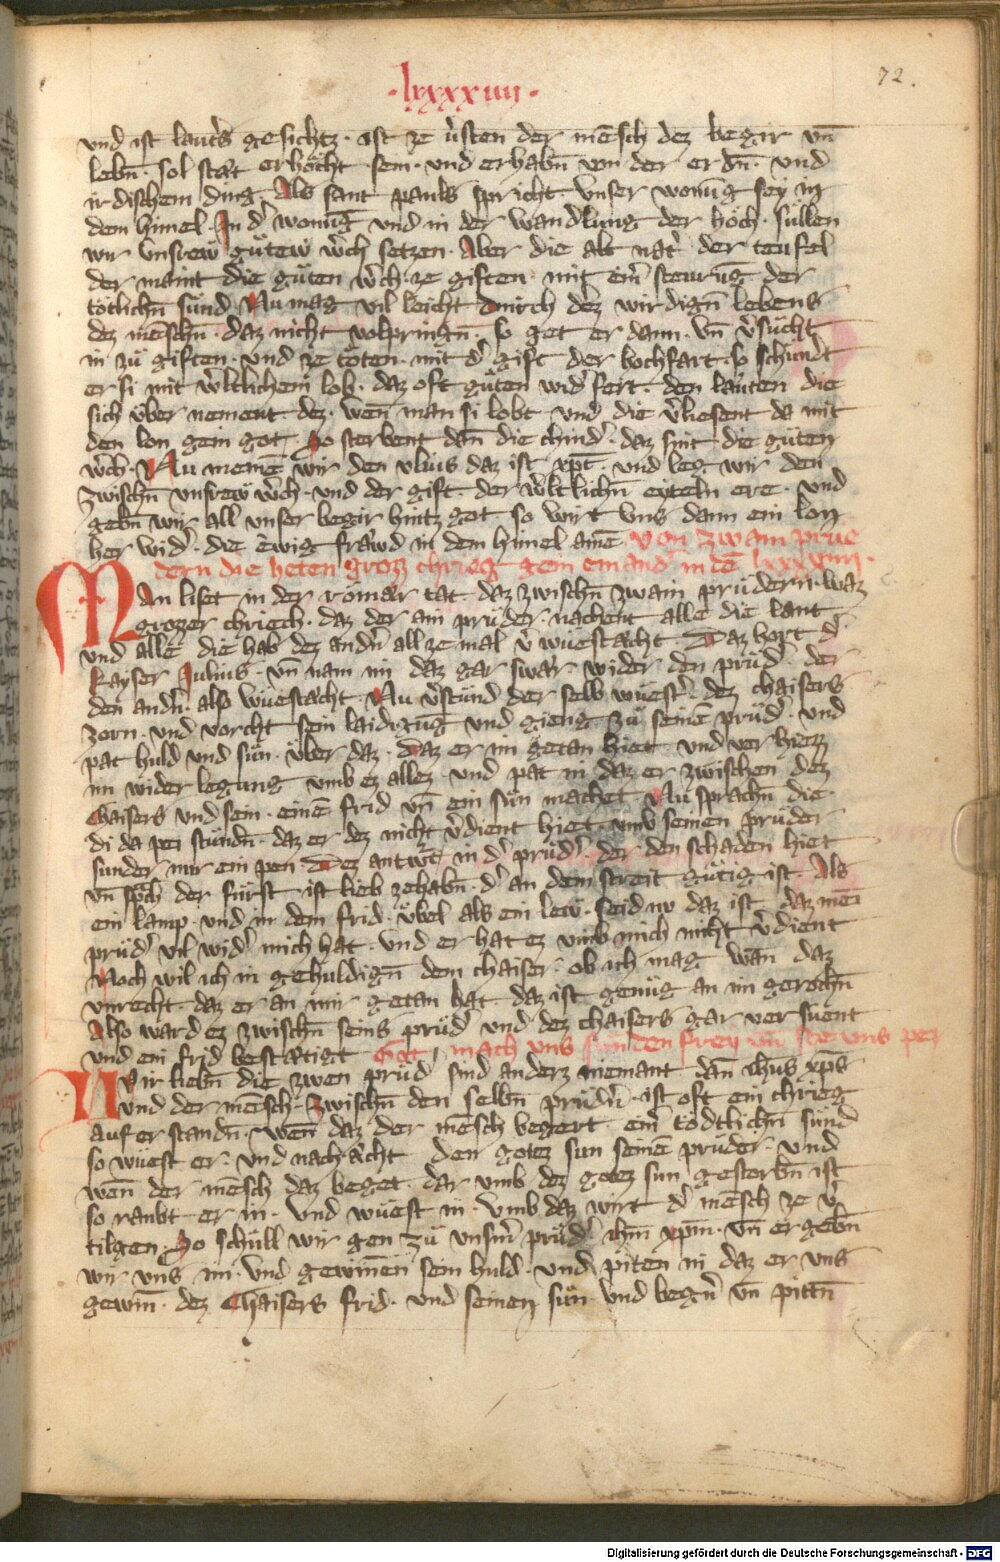 72.
·lxxxiiij·
und ist laut's gesichtz· ist ze v'sten der mēsch dez begir vn̄
lebn̄· sol stät erhöcht sein· und erhabn̄ von der erdn̄· und
irdischem ding Als sant pauls spricht unser wonūg sey in
dem himel· In d' wonūg und in der wandlung der höch· süllen
wir unsrew gütew w'ch setzen· Aber die alt nat' der teufel
der maint die güten w'ch ze giften· mit ein' stewrūg der
tötlichn̄ sünd Nu mag vil leicht durch dez wirdign̄ lebens
dez mēschn̄· daz nicht volpringn̄· so get er dann· vn̄ v'sücht
in zü giften· und ze töten· mit d' gift der hochfart· so schündt
er si mit w'ltlichem lob· daz oft güten wid'fert· den läuten die
sich über nement dez· wen̄ man si lobt und die v'liesent da mit
den lon gein got· So sterbent dan̄ die chind'· daz sint die güten
w'ch· Nu nemē wir den vluis daz ist xp̄t· und leg wir den
zwischn̄ unsrew w'ch· und der gift· der w'ltlichn̄ eyteln ere· und
gebn̄ wir all unser begir hintz got so wirt uns dann ein lon
her wid'· die ewig fräwd in dem himel amē· Von zwain prüe
dern die heten groz chrieg gein einand' in dē lxxxiiij·
Man liset in der romär tät daz zwischn̄ zwain prüdern· waz
grozzer chriech· daz der ain prüder· nachent alle die lant
und alle die hab dez andn̄ all ze mal v'wuestächt Daz hort d'
kayser Julius· vn̄ nam im daz gar swär wider den prüd'· der
den andn̄· also wüestächt· Nu v'stünd der selb wüest'· dez chaisers
zorn· und vorcht sein laidigūg und gieng zü seinē prüd'· und
pat huld und sün· über daz· Daz er im getan hiet· und verhiezz
im widerlegung umb ez allez· und pat in daz er zwischen dez
Chaisers und sein· einē frid vn̄ ein sün machet Nu sprachn̄ die
di da pei stündn̄· daz er dez nicht v'dient hiet· umb seinen prüder
sunder nur ein pen Dez antw't in d' prüd'· der den schaden hiet
vn̄ sp̄ch der fürst ist lieb zehabn̄· d' an dem streit gütig ist· Als
ein lamp· und in dem frid· übel als ein lew· seid nv daz ist· daz mei
prüd' vil wid' mich hat· und er hat ez umb mich nicht v'dient
Noch wil ich in gehuldign̄ dem chaiser· ob ich mag wān daz
vnrecht· daz er an mir getan hat· daz ist genüg an im gerochn̄
Also ward ez zwischn̄ seins prüd' und dez chaisers gar versuent
und ein frid bestätigt Got mach uns sunden frey vn̄ ste uns pey
Nv ir liebn̄ die zwen prüd' sind anderz niemant dan̄ ih̄us xp̄s
und der mēsch· Zwischn̄ den selbn̄ prüdn̄· ist oft ein chrieg
auf erstandn̄· wen̄ daz der mēsch begert· ein' tödtlichn̄ sünd
so wüest er· und nach ächt den gotez sun seinē prüder· und
wen̄ der mēsch daz beget· dar umb dez gotez sun gestorbn̄ ist
so raubt er in· und wüest in· Umb daz wirt d' mēsch ze v'
tilgen So schüll wir gen zü unsm̄ prüd' ih̄m xp̄m· vn̄ ergebn̄
wir uns im· und gewinēn sein huld· und piten in daz er uns
gewin̄· dez Chaisers frid· und seinen sün und begn̄ vn̄ pittn̄
Digitalisierung gefördert durch die Deutsche Forschungsgemeinschaft - DFG